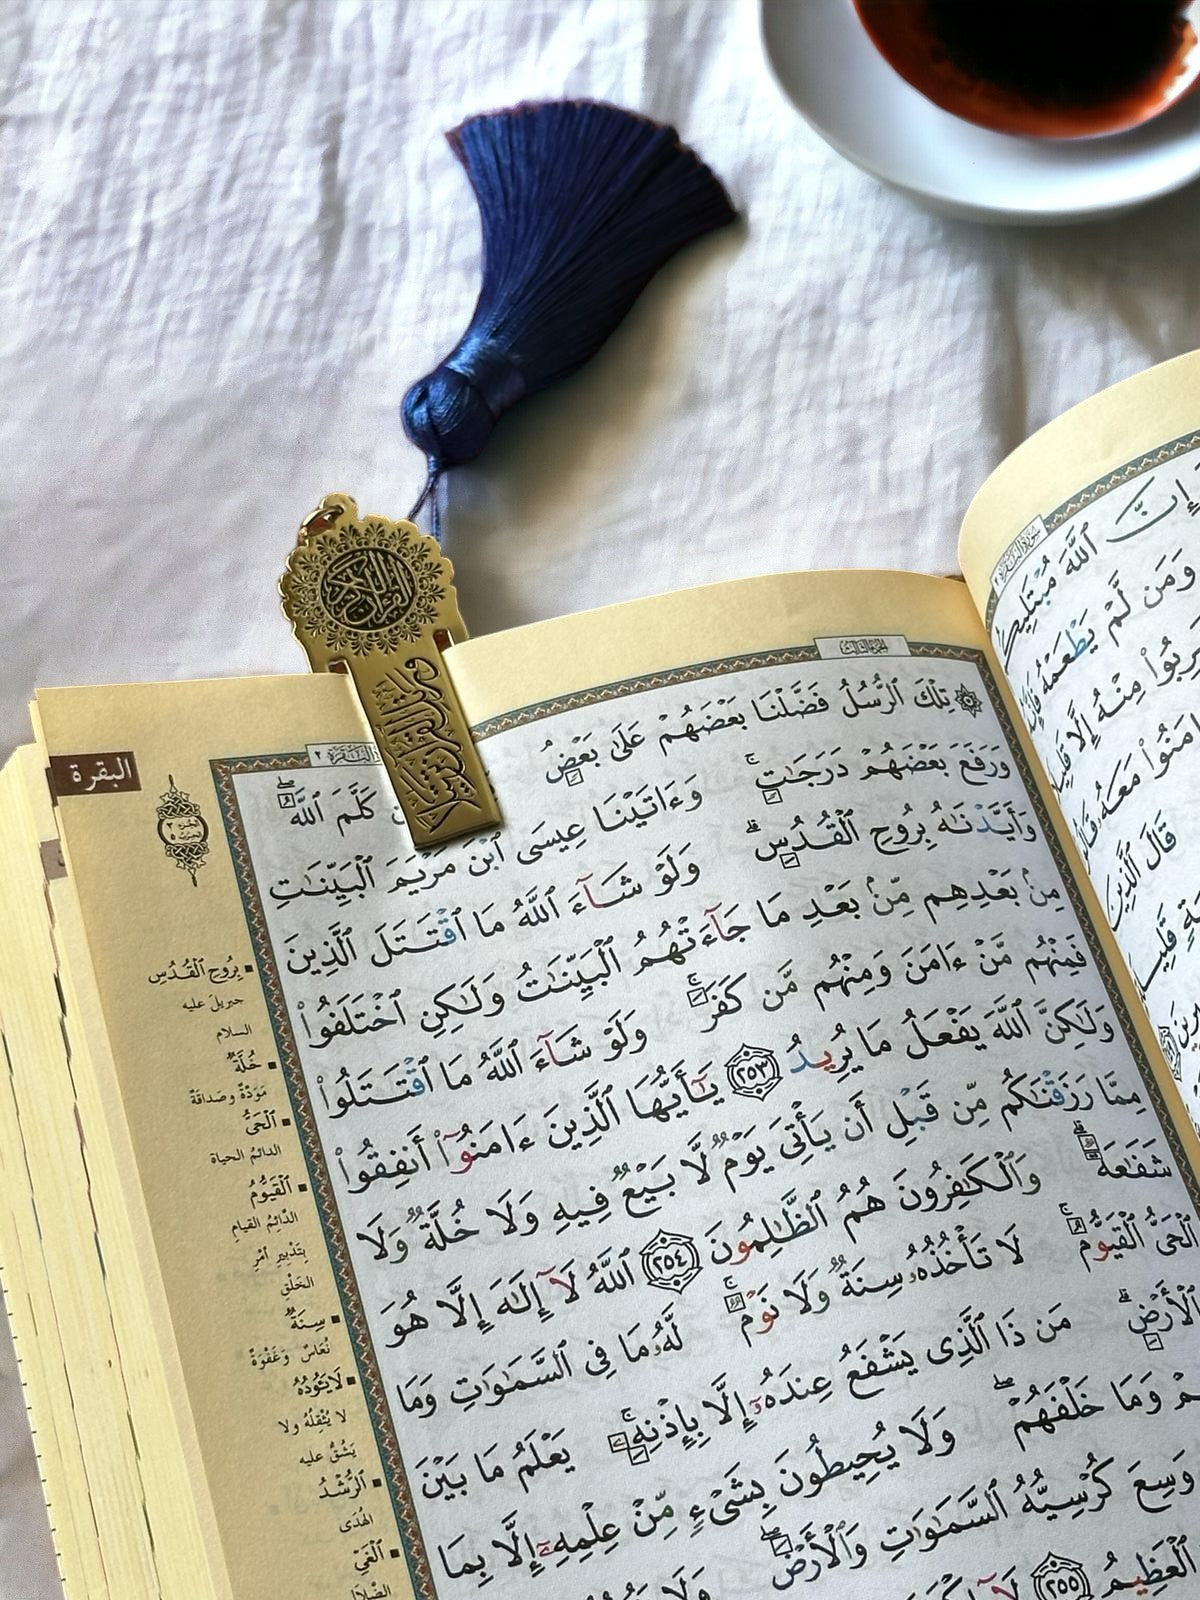 القرآن الكريم
ورتل القرآن ترتيلا
الجزء الثالث
تِلْكَ ٱلرُّسُلُ فَضَّلْنَا بَعْضَهُمْ عَلَىٰ بَعْضٍ
كَلَّمَ ٱللَّهُ وَرَفَعَ بَعْضَهُمْ دَرَجَٰتٍ
وَءَاتَيْنَا عِيسَى ٱبْنَ مَرْيَمَ ٱلْبَيِّنَٰتِ
وَأَيَّدْنَٰهُ بِرُوحِ ٱلْقُدُسِ وَلَوْ شَآءَ ٱللَّهُ مَا ٱقْتَتَلَ ٱلَّذِينَ
مِنۢ بَعْدِهِم مِّنۢ بَعْدِ مَا جَآءَتْهُمُ ٱلْبَيِّنَٰتُ وَلَٰكِنِ ٱخْتَلَفُوا۟
فَمِنْهُم مَّنْ ءَامَنَ وَمِنْهُم مَّن كَفَرَ وَلَوْ شَآءَ ٱللَّهُ مَا ٱقْتَتَلُوا۟
وَلَٰكِنَّ ٱللَّهَ يَفْعَلُ مَا يُرِيدُ ٢٥٣ يَٰٓأَيُّهَا ٱلَّذِينَ ءَامَنُوٓا۟ أَنفِقُوا۟
مِمَّا رَزَقْنَٰكُم مِّن قَبْلِ أَن يَأْتِىَ يَوْمٌ لَّا بَيْعٌ فِيهِ وَلَا خُلَّةٌ وَلَا
شَفَٰعَةٌ وَٱلْكَٰفِرُونَ هُمُ ٱلظَّٰلِمُونَ ٢٥٤ ٱللَّهُ لَآ إِلَٰهَ إِلَّا هُوَ
ٱلْحَىُّ ٱلْقَيُّومُ لَا تَأْخُذُهُۥ سِنَةٌ وَلَا نَوْمٌ لَّهُۥ مَا فِى ٱلسَّمَٰوَٰتِ وَمَا
ٱلْأَرْضِ مَن ذَا ٱلَّذِى يَشْفَعُ عِندَهُۥٓ إِلَّا بِإِذْنِهِۦ يَعْلَمُ مَا بَيْنَ
وَمَا خَلْفَهُمْ وَلَا يُحِيطُونَ بِشَىْءٍ مِّنْ عِلْمِهِۦٓ إِلَّا بِمَا
وَسِعَ كُرْسِيُّهُ ٱلسَّمَٰوَٰتِ وَٱلْأَرْضَ وَلَا
ٱلْعَظِيمُ ٢٥٥ لَآ
البقرة
بِرُوحِ ٱلْقُدُسِ
جبريل عليه
السلام
خُلَّةٌ
مَوَدَّةٌ وصداقة
ٱلْحَىُّ
الدائمُ الحياة
ٱلْقَيُّومُ
الدَّائِمُ القيام
بِتَدْبِيرِ أمْرِ
الخلْقِ
سِنَةٌ
نُعَاسٌ وَغَفْوَةٌ
لَا يَئُودُهُ
لا يُثْقِلُهُ ولا
يَشُقُّ عليه
ٱلرُّشْدُ
الهُدَى
ٱلْغَىِّ
الضَّلَال
إِنَّ
ٱللَّهَ مُبْتَلِيكُم
وَمَن لَّمْ يَطْعَمْهُ
مِنْهُ إِلَّا
مَعَهُۥ
قَالَ ٱلَّذِينَ